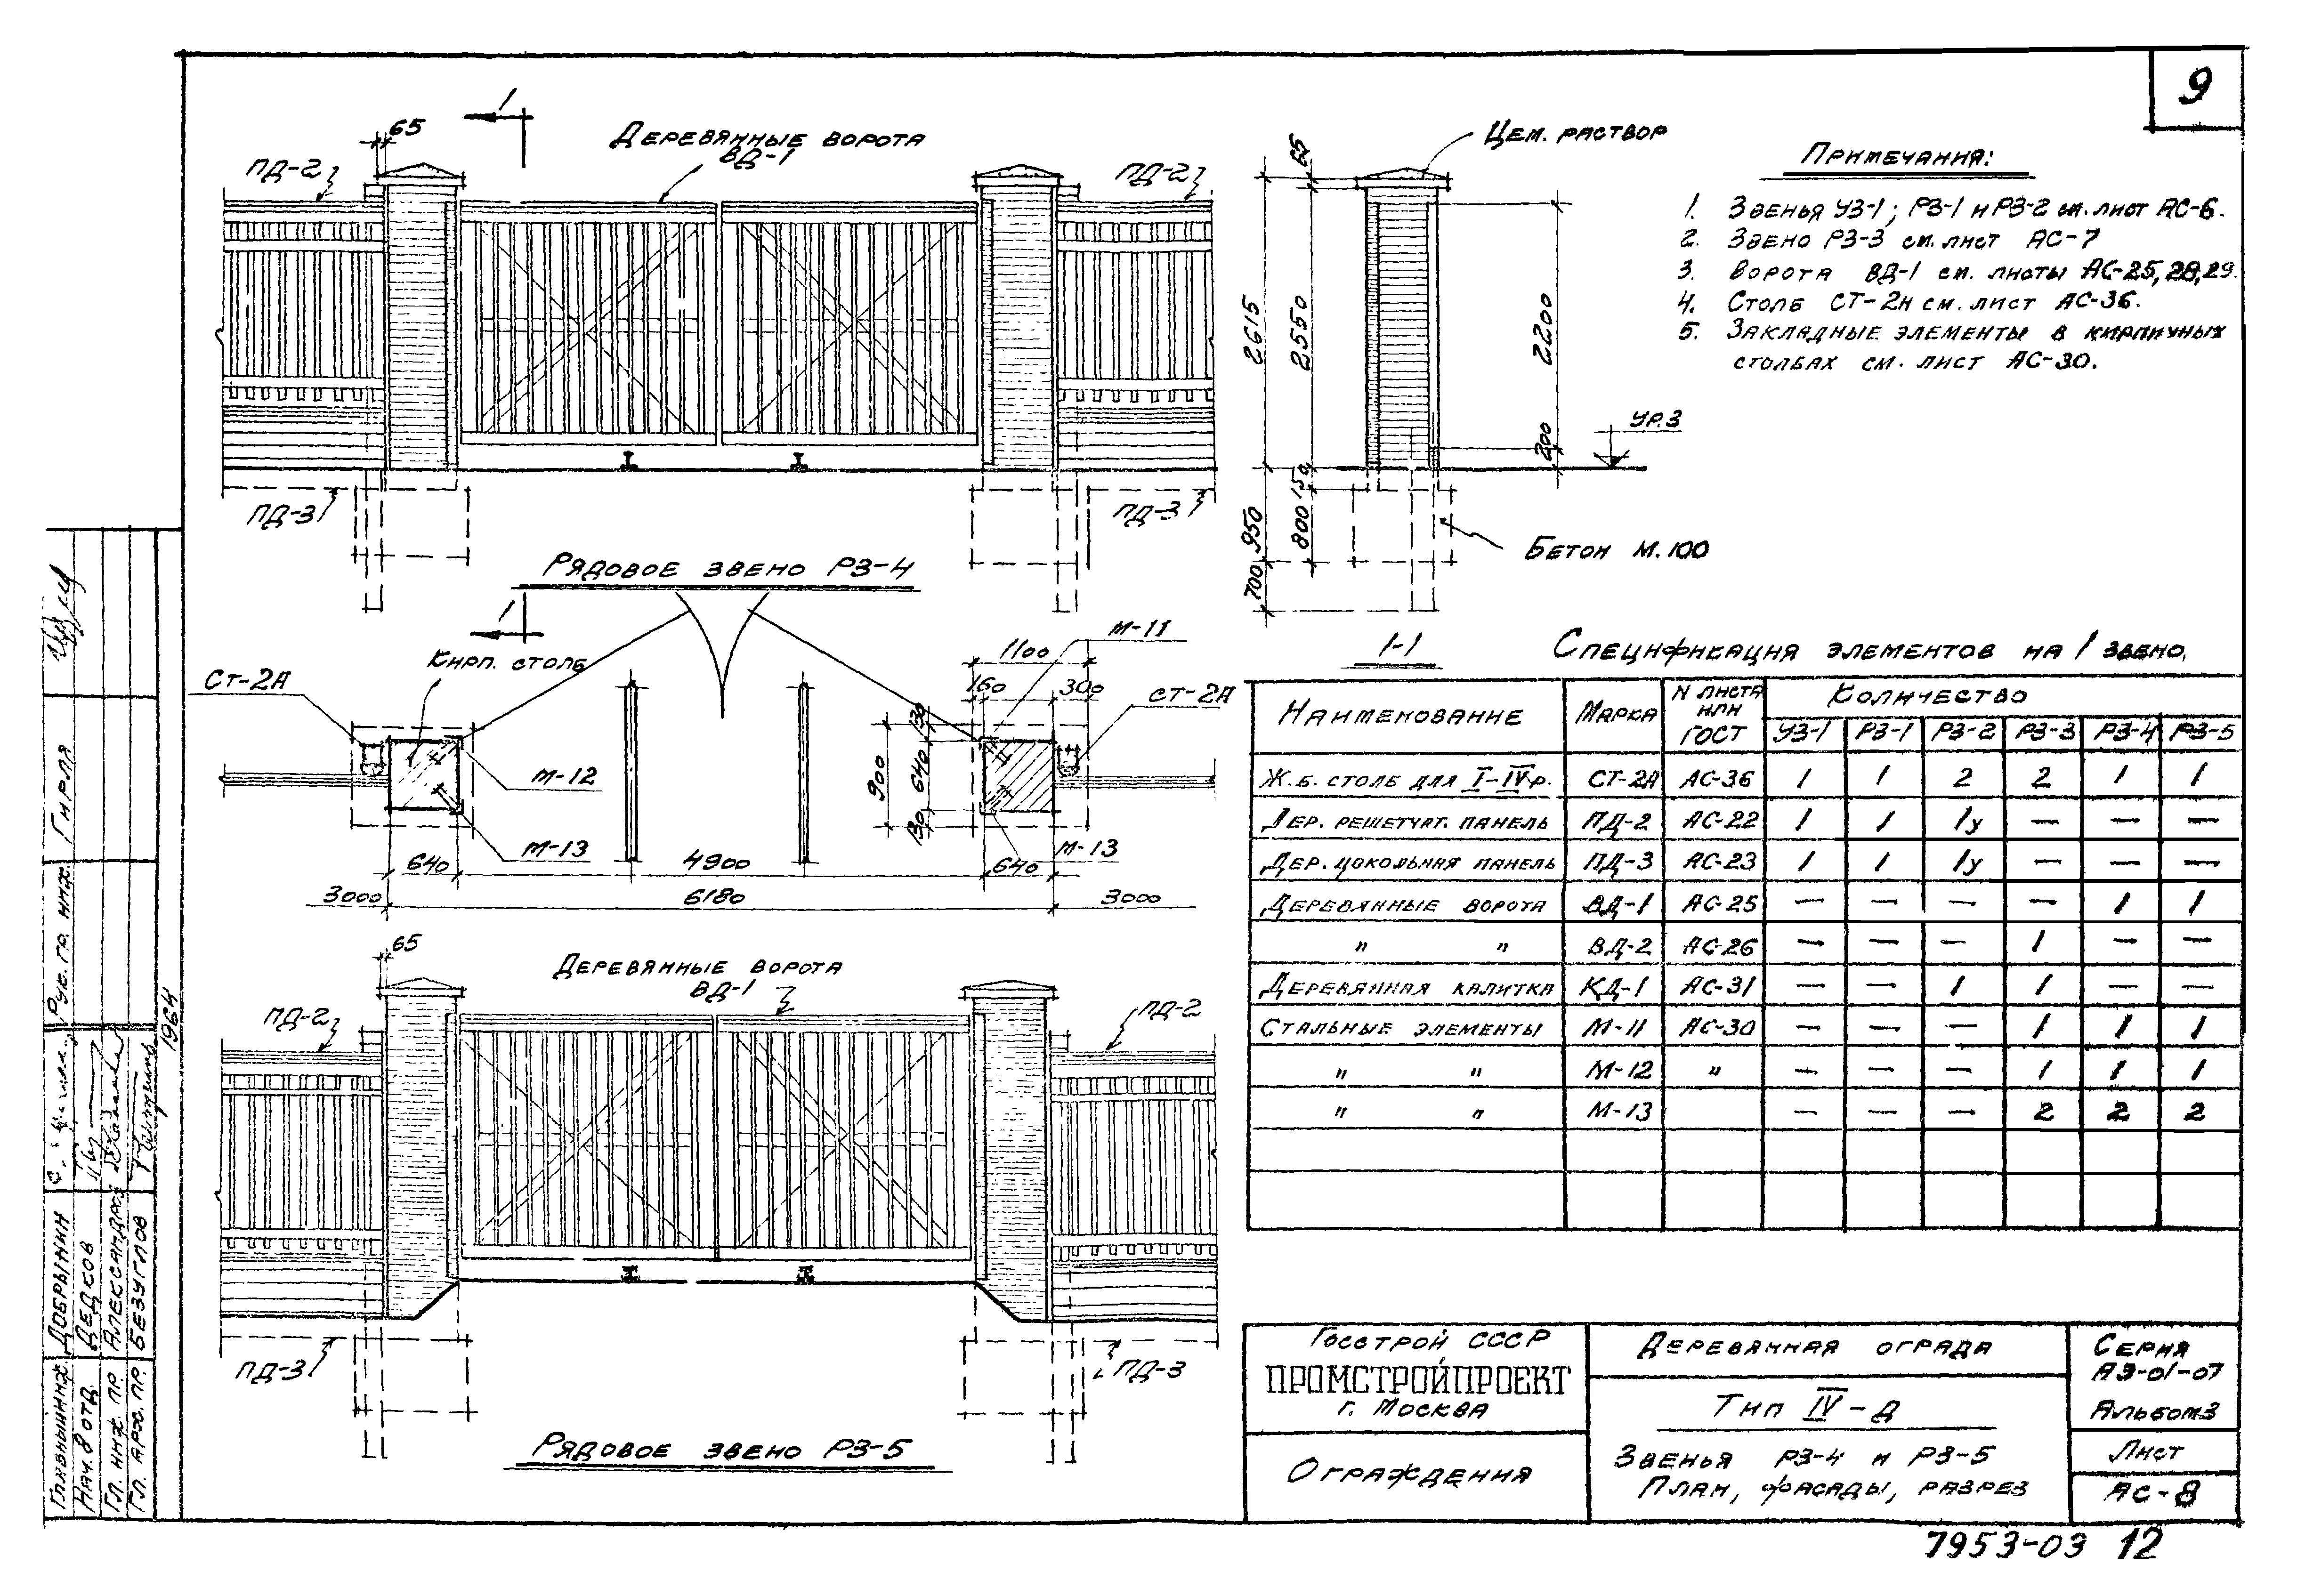 9
1
65
Деревянные ворота
ВД-1
ПД-2
ПД-2
ПД-3
ПД-3
Рядовое звено РЗ-4
65
Цем. раствор
2615
2550
2200
200
УР.З
150
800
950
700
Бетон М.100
1-1
Примечания:
1. Звенья УЗ-1; РЗ-1 и РЗ-2 см. лист АС-6.
2. Звено РЗ-3 см. лист АС-7
3. Ворота ВД-1 см. листы АС-25, 28, 29.
4. Столб СТ-2н см. лист АС-36.
5. Закладные элементы в кирпичных
столбах см. лист АС-30.
1
Кирп. столб
СТ-2А
М-11
1100
160
300
СТ-2А
130
640
900
130
М-12
М-13
М-13
640
4900
640
3000
6180
3000
65
Деревянные ворота
ВД-1
ПД-2
ПД-2
ПД-3
ПД-3
Рядовое звено РЗ-5
Спецификация элементов на 1 звено.
Наименование Марка N листа или ГОСТ Количество
УЗ-1 РЗ-1 РЗ-2 РЗ-3 РЗ-4 РЗ-5
Ж.б. столб для I-IV р. СТ-2А АС-36 1 1 2 2 1 1
Дер. решетчат. панель ПД-2 АС-22 1 1 1у — — —
Дер. цокольная панель ПД-3 АС-23 1 1 1у — — —
Деревянные ворота ВД-1 АС-25 — — — — 1 1
" " ВД-2 АС-26 — — — 1 — —
Деревянная калитка КД-1 АС-31 — — 1 1 — —
Стальные элементы М-11 АС-30 — — — 1 1 1
" " М-12 " — — — 1 1 1
" " М-13 — — — 2 2 2
Госстрой СССР
ПРОМСТРОЙПРОЕКТ
г. Москва
Ограждения
Деревянная ограда
Тип IV-Д
Звенья РЗ-4 и РЗ-5
План, фасады, разрез
Серия
АЭ-01-07
Альбом 3
Лист
АС-8
7953-03 12
Рук. гр. инж. Гирля
1964
Главный инж. Добрынин
Нач. 8 отд. Дедков
Гл. инж. пр.
Гл. арх. пр. Безуглов